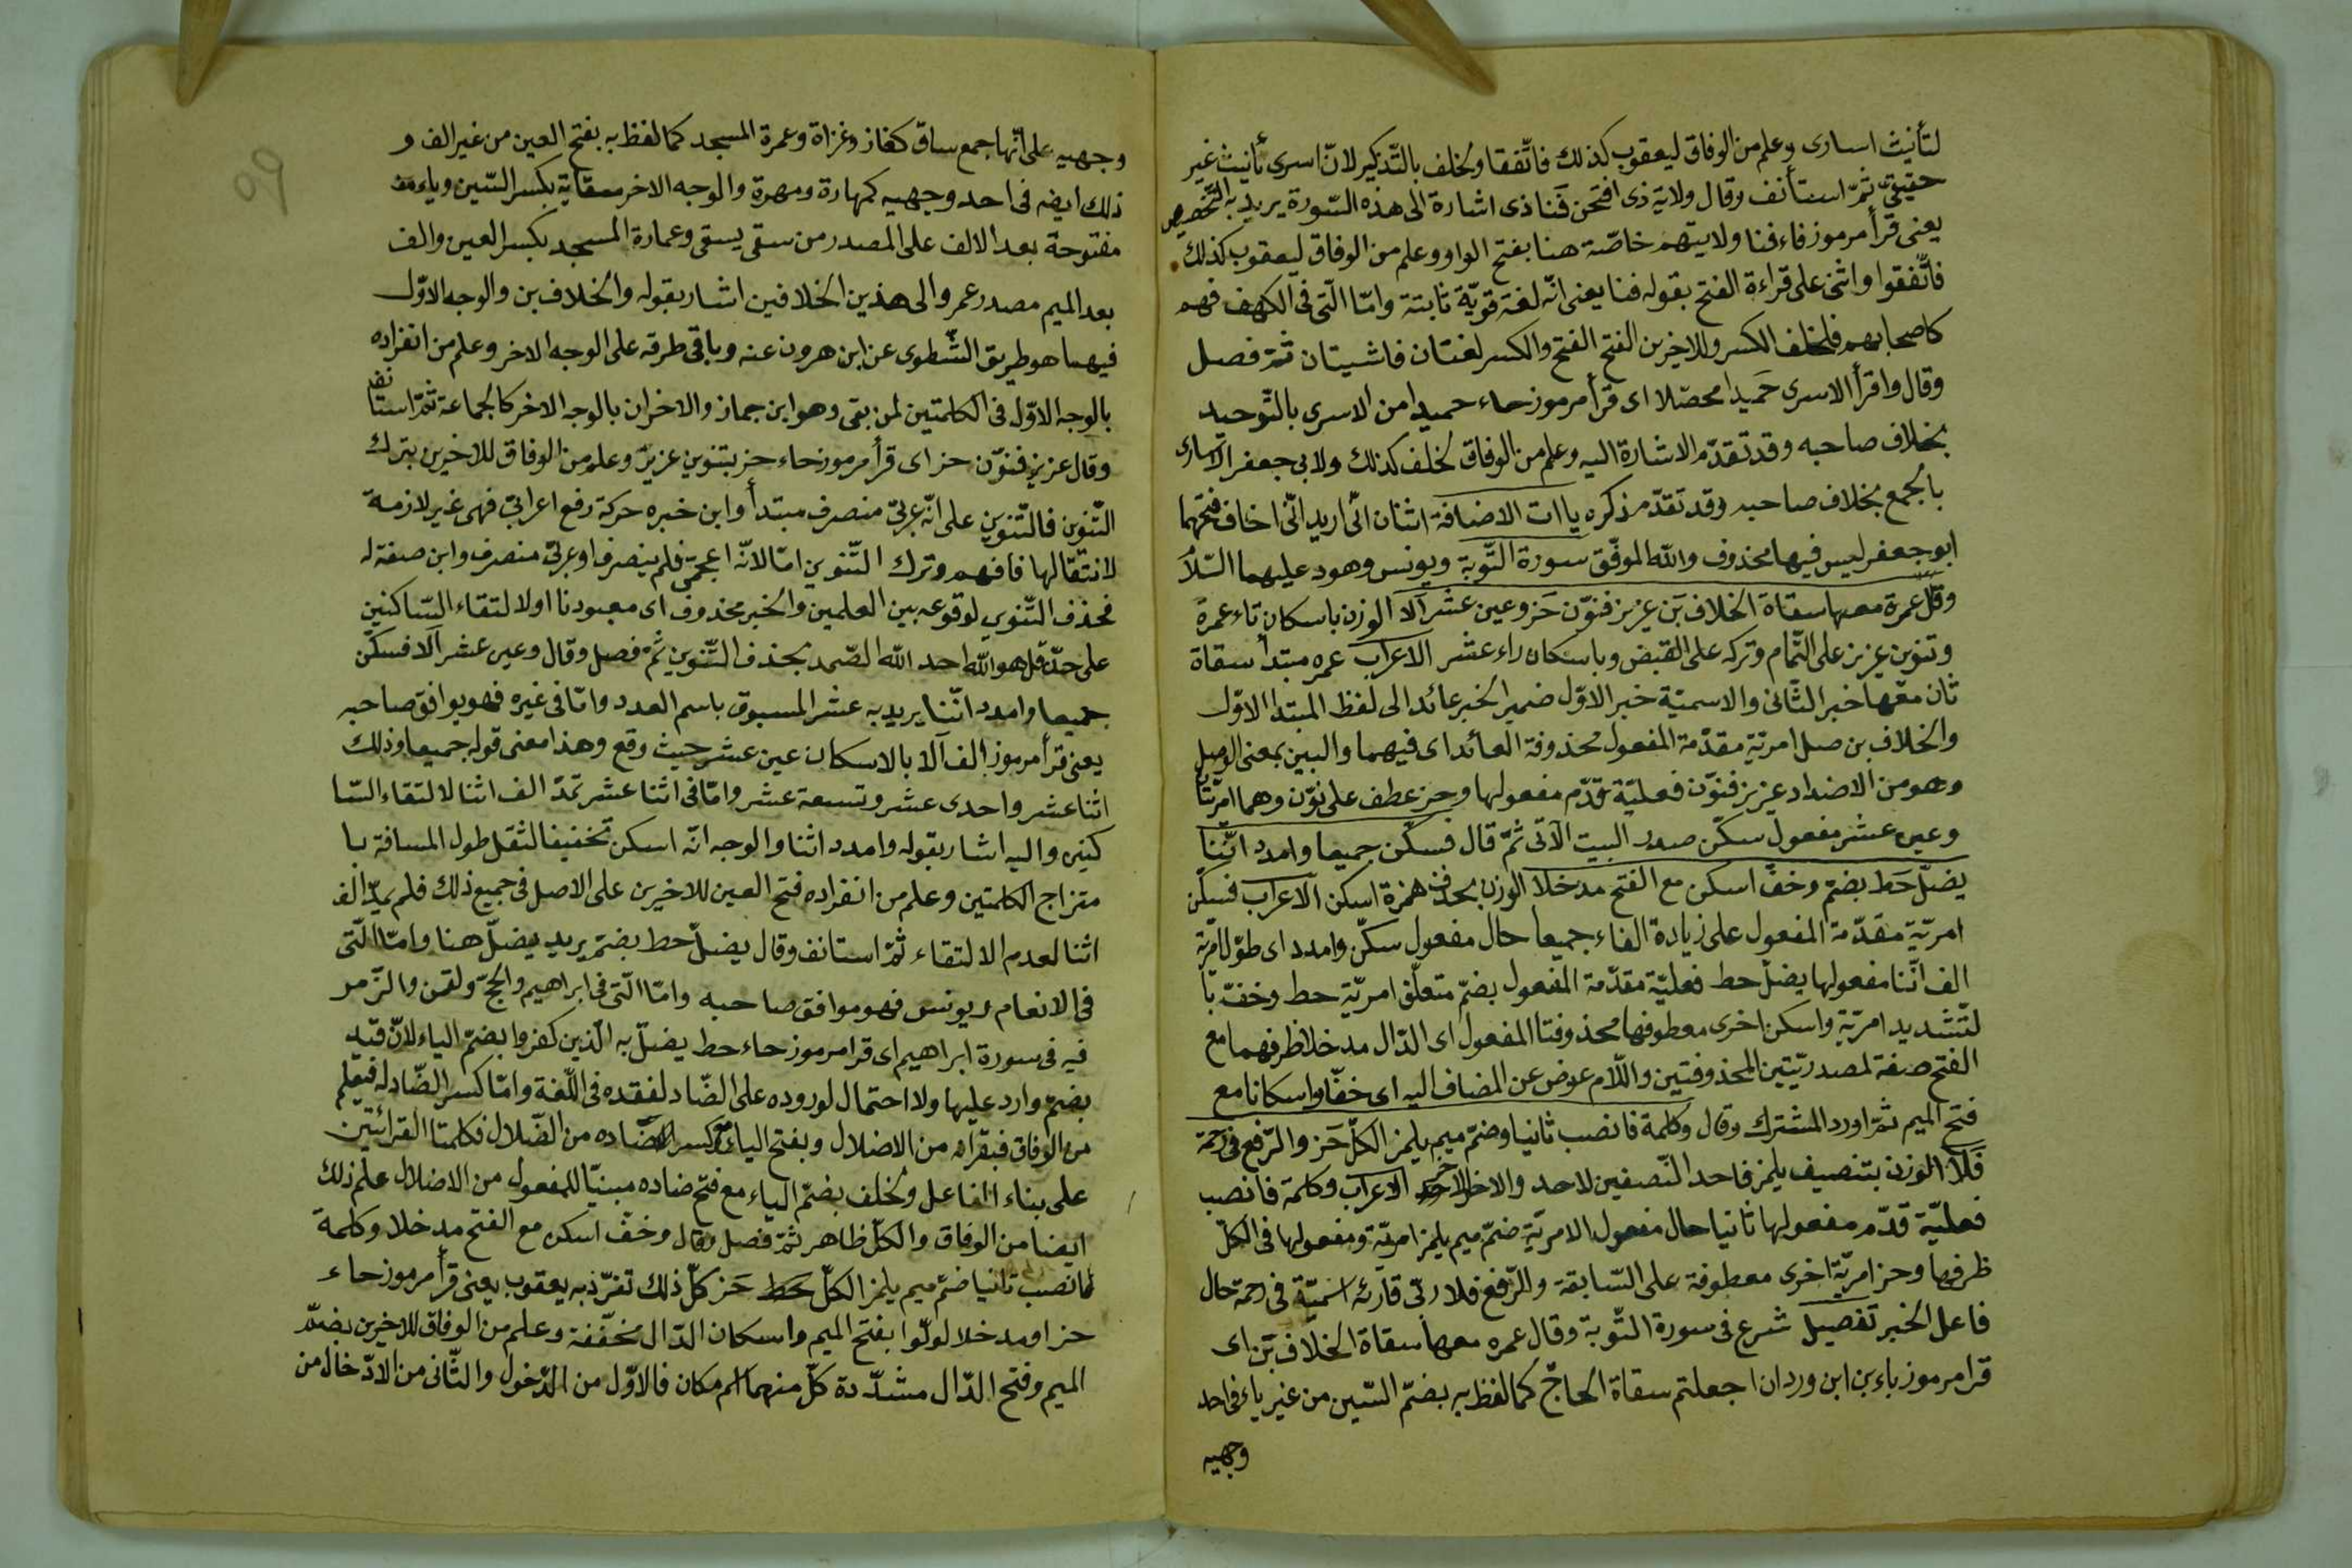 لتأنيث اسارى وعلم من الوفاق ليعقوب كذلك فاتّفقا ولخلف بالتّذكير لانّ اسرى تأنيث غير
حقيقىّ ثمّ استأنف وقال ولاية ذى افتحن فَنا ذى اشارة الى هذه السّورة يريد به التّخصيص
يعنى قرأ مرموز فاء فنا ولايتهم خاصّة هنا بفتح الواو وعلم من الوفاق ليعقوب كذلك
فاتّفقوا واثنى على قراءة الفتح بقوله فنا يعنى انّه لغة قويّة ثابتة وامّا الّتى فى الكهف فهم
كاصحابهم فلخلف الكسر وللاخرين الفتح الفتح والكسر لغتان فاشيتان ثمّ فصل
وقال واقرأ الاسرى حَميدا محصّلا اى قرأ مرموز حاء حميدا من الاسرى بالتّوحيد
بخلاف صاحبه وقد تقدّم الاشارة اليه وعلم من الوفاق لخلف كذلك ولابى جعفر الاسارى
بالجمع بخلاف صاحبه وقد تقدّم ذكره ياات الاضافة اثنان انّى اريد انّى اخاف فتحهما
ابو جعفر ليس فيها محذوف والله الموفّق سورة التّوبة ويونس وهود عليهما السّلام
وقل عمرة معها سقاة الخلاف بَن عزيز فنوّن حَز وعين عشر اَلا الوزن باسكان تاء عمرة
وتنوين عزيز على التّمام وتركه على القبض وباسكان راء عشر الاعراب عمره مبتدأ سقاة
ثان معها خبر الثّانى والاسميّة خبر الاوّل ضمير الخبر عائد الى لفظ المبتدا الاوّل
والخلاف بن صل امريّة مقدّمة المفعول محذوفة العائد اى فيهما والبين بمعنى الوصل
وهو من الاضداد عزيز فنوّن فعليّة قدّم مفعولها وحز عطف على نوّن وهما امريّتان
وعين عشر مفعول سكّن صدر البيت الآتى ثمّ قال فسكّن جميعا وامدد اثنا
يضلّ حَط بضم وخفّ اسكن مع الفتح مدخلا الوزن بحذف همزة اسكن الاعراب فسكّن
امريّة مقدّمة المفعول على زيادة الفاء جميعا حال مفعول سكّن وامدد اى طوّل امريّة
الف اثنا مفعولها يضلّ حط فعليّة مقدّمة المفعول بضمّ متعلّق امريّة حط وخفّ با
لتّشديد امريّة واسكن اخرى معطوفها محذوفتا المفعول اى الدّال مدخلا ظرفهما مع
الفتح صفة لمصدريّتين المحذوفتين واللّام عوض عن المضاف اليه اى خفّا واسكانا مع
فتح الميم ثمّ اورد المشترك وقال وكلمة فانصب ثانيا وضمّ ميم يلمز الكلّ حَز والرّفع فى رحمة
فلا الوزن بتنصيف يلمز فاحد النّصفين لاحد والاخر للاخر الاعراب وكلمة فانصب
فعليّة قدّم مفعولها ثانيا حال مفعول الامريّة ضمّ ميم يلمز امريّة ومفعولها فى الكلّ
ظرفها وحز امريّة اخرى معطوفة على السّابقة والرّفع فلا ربّى قارئه اسميّة فى رحمة حال
فاعل الخبر تفصيل شرع فى سورة التّوبة وقال عمره معها سقاة الخلاف بَن اى
قرا مرموز باء بن ابن وردان اجعلتم سقاة الحاجّ كما لفظ به بضمّ السّين من غير ياء فى احد
وجهيه
٥٩
وجهيه على انّها جمع ساق كغاز وغزاة وعمرة المسجد كما لفظ به بفتح العين من غير الف و
ذلك ايضه فى احد وجهيه كمهارة ومهرة والوجه الاخر سقاية بكسر السّين وياء
مفتوحة بعد الالف على المصدر من سقى يسقى وعمارة المسجد بكسر العين والف
بعد الميم مصدر عمر والى هذين الخلافين اشار بقوله والخلاف بن والوجه الاوّل
فيهما هو طريق الشّطوى عن ابن هرون عنه وباقى طرقه على الوجه الاخر وعلم من انفراده
بالوجه الاوّل فى الكلمتين لمن بقى وهو ابن جماز والاخران بالوجه الاخر كالجماعة ثمّ استانف
وقال عزيز فنوّن حز اى قرأ مرموز حاء حز بتنوين عزيرٌ وعلم من الوفاق للاخيرين بترك
التّنوين فالتّنوين على انّه عربىّ منصرف مبتدأ وابن خبره حركة رفع اعرابىّ فهى غير لازمة
لانتقالها فافهم وترك التّنوين امّا لانّه اعجمى فلم ينصرف او عربىّ منصرف وابن صفة له
فحذف التّنوي لوقوعه بين العلمين والخبر محذوف اى معبودنا اولا لتقاء السّاكنين
على حدّ قل هو الله احد الله الصّمد بحذف التّنوين ثمّ فصل وقال وعين عشر اَلا فسكّن
جميعا وامدد اثنا يريد به عشر المسبوق باسم العدد وامّا فى غيره فهو يوافق صاحبه
يعنى قرأ مرموز الف اَلا بالاسكان عين عشر حيث وقع وهذا معنى قوله جميعا وذلك
اثنا عشر واحدى عشر وتسعة عشر وامّا فى اثنا عشر تمدّ الف اثنا لالتقاء السّا
كنين واليه اشار بقوله وامدد اثنا والوجه انّه اسكن تخفيفا لثقل طول المسافة با
متزاج الكلمتين وعلم من انفراده فتح العين للاخيرين على الاصل فى جميع ذلك فلم يمدّ الف
اثنا لعدم الالتقاء ثمّ استانف وقال يضلّ حط بضمّ يريد يضلّ هنا وامّا الّتى
فى الانعام ويونس فهو موافق صاحبه وامّا الّتى فى ابراهيم والحجّ ولقمن والزّمر
فيه فى سورة ابراهيم اى قرا مرموز حاء حط يضلّ به الّذين كفروا بضمّ الياء لانّ قيد
بضمّ وارد عليها ولا احتمال لوروده على الضّاد لفقده فى اللّغة وامّا كسر الضّاد له فيعلم
من الوفاق فبقرأه من الاضلال وبفتح الياء وكسر ضاده من الضّلال فكلمتا القرائتين
على بناء الفاعل ولخلف بضمّ الياء مع فتح ضاده مبنيّا للمفعول من الاضلال علم ذلك
ايضا من الوفاق والكلّ ظاهر ثمّ فصل وقال وخفّ اسكن مع الفتح مدخلا وكلمة
فانصب ثانيا ضمّ ميم يلمز الكلّ حَز كلّ ذلك تفرّد به يعقوب يعنى قرأ مرموز حاء
حز او مدخلا لولّوا بفتح الميم واسكان الدّال مخفّفة وعلم من الوفاق للاخرين بضمّ
الميم وفتح الدّال مشدّدة كلّ منهما اسم مكان فالاوّل من الدّخول والثّانى من الادّخال من